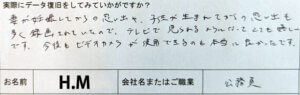 実際にデータ復旧をしてみていかがですか?
妻が妊娠してからの思い出や、子供が生まれてからの思い出も
多く録画されていたので、テレビで見られるようになってとても嬉しい
です。今後もビデオカメラが使用できるのも本当に良かったです。
お名前 H.M 会社名またはご職業 公務員